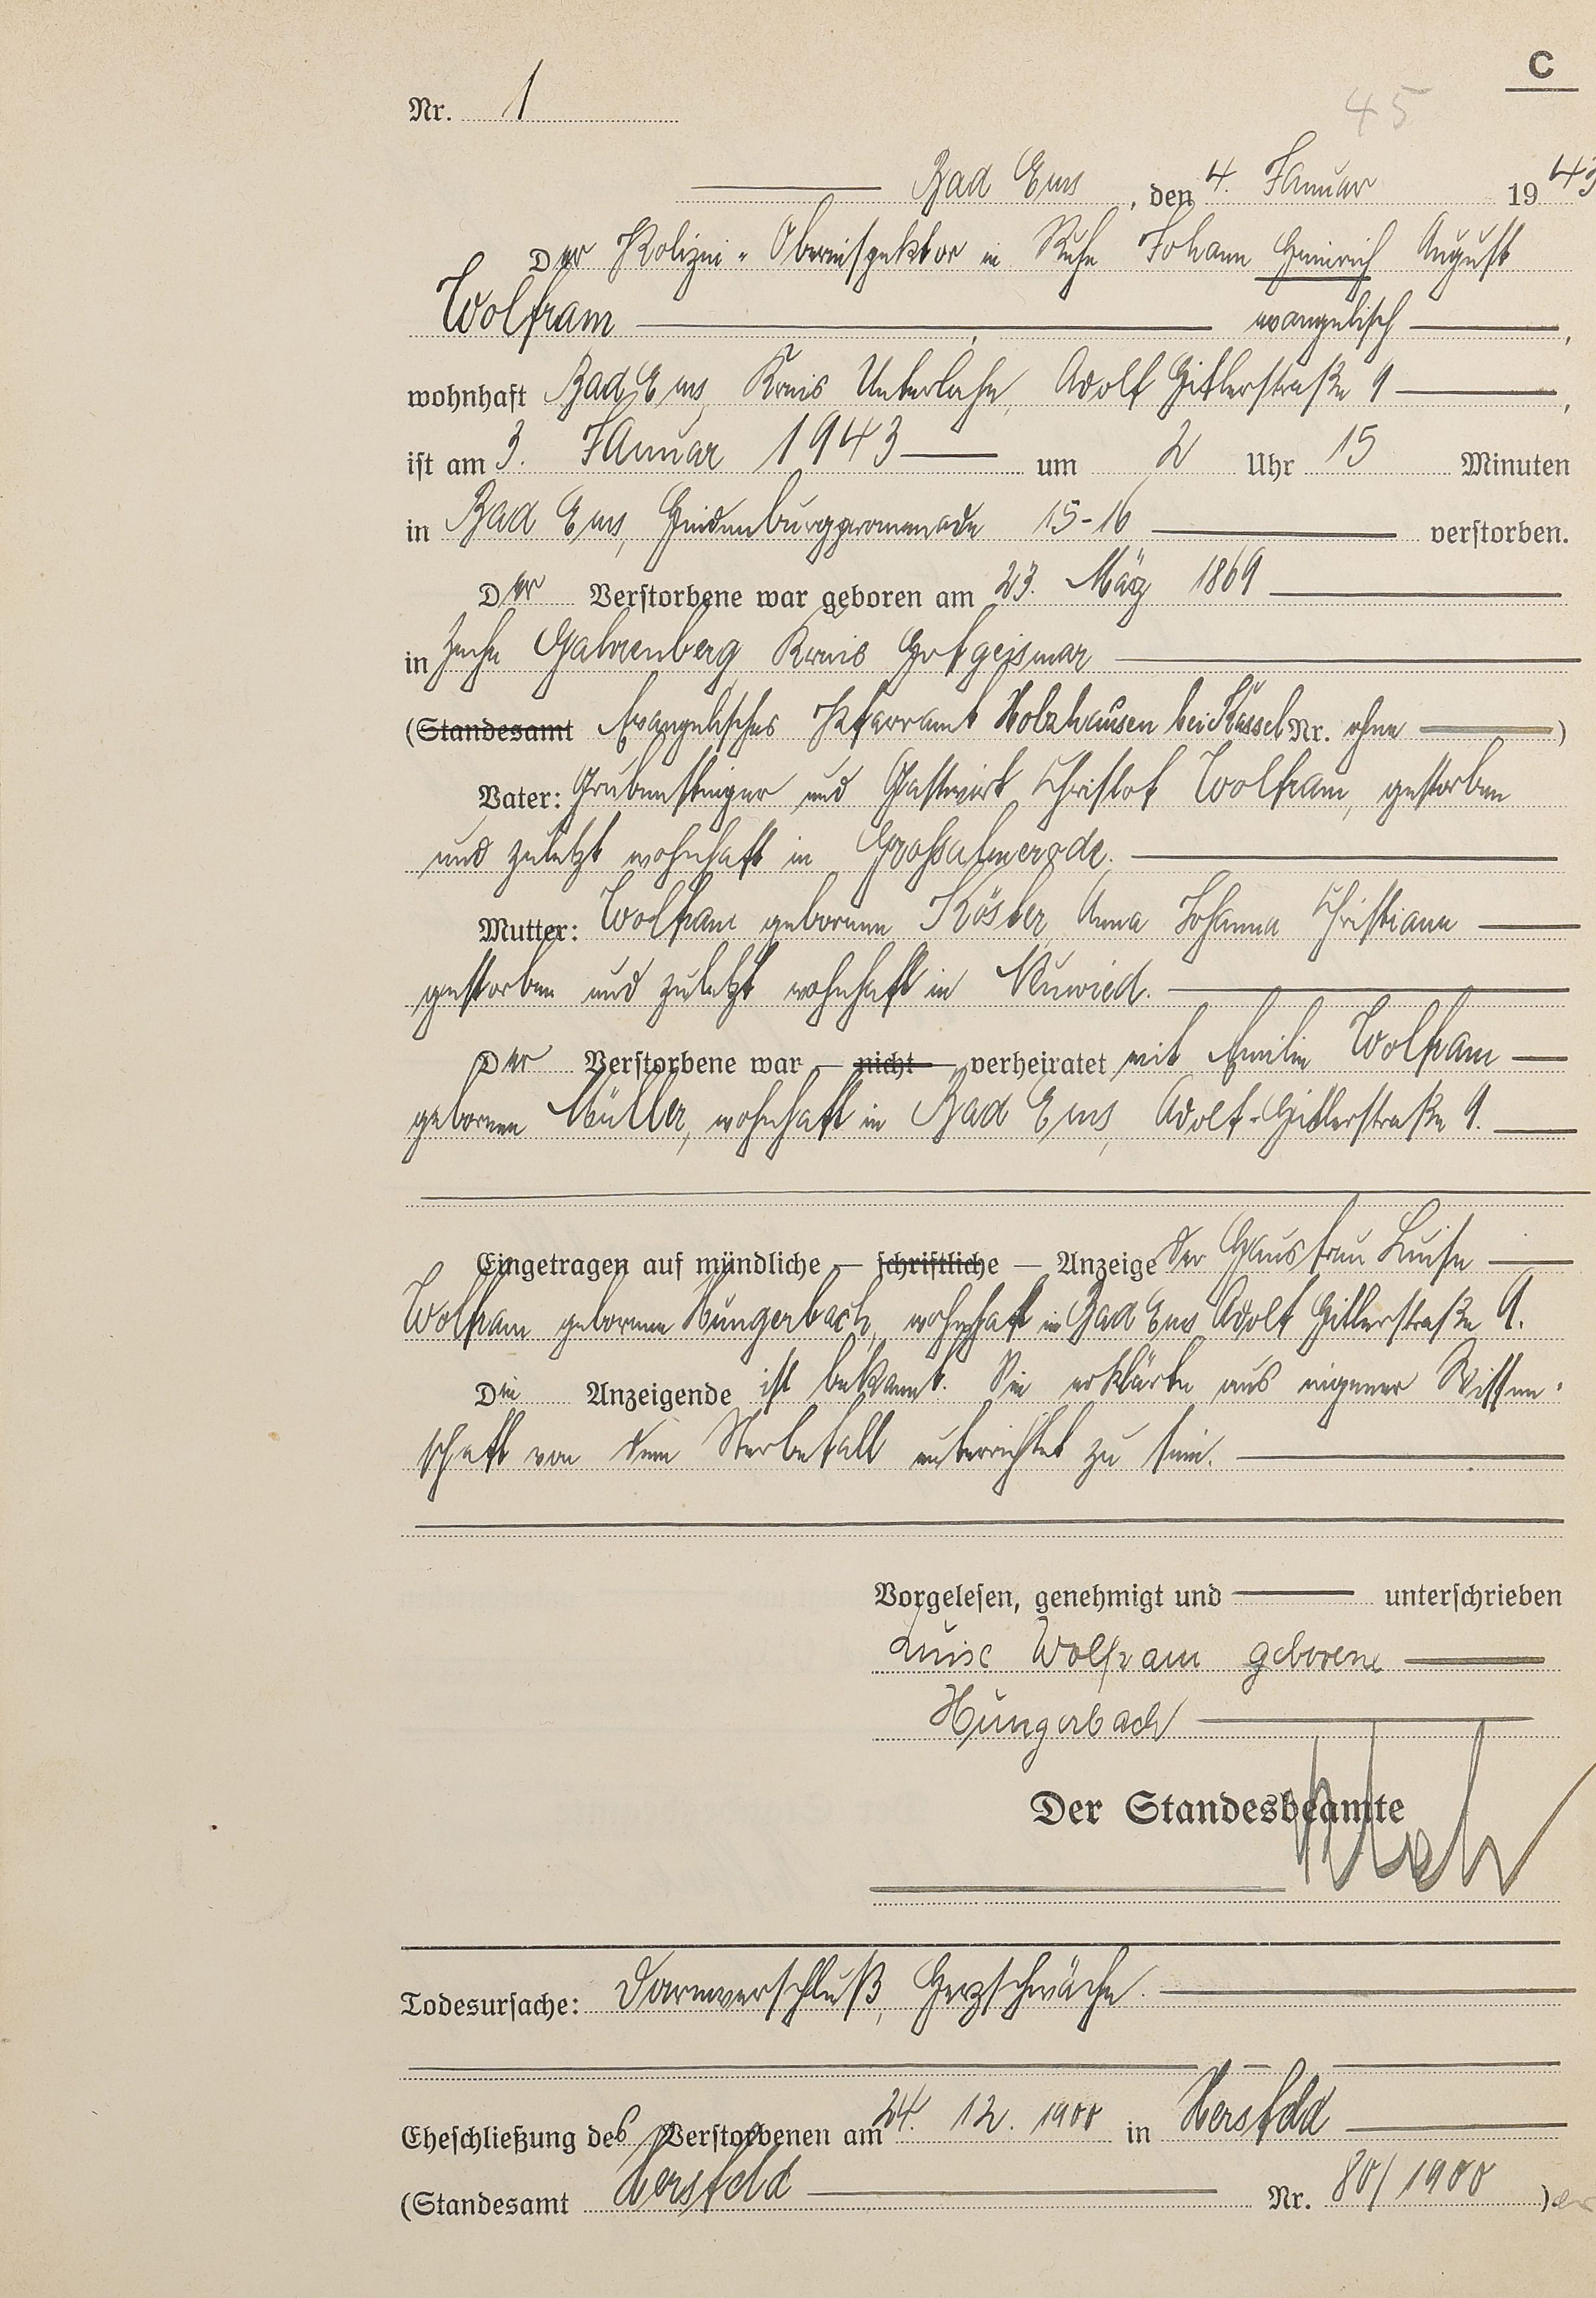 C
Nr. 1
45
Bad Ems, den 4. Januar 1943
Der Polizei-Oberinspektor in Ruhe Johann Heinrich August
Wolfram, evangelisch,
wohnhaft Bad Ems, Kreis Unterlahn, Adolf Hitlerstraße 9,
ist am 3. Januar 1943 um 2 Uhr 15 Minuten
in Bad Ems, Hindenburgpromenade 15-16 verstorben.
Der Verstorbene war geboren am 23. März 1869
in Zeche Gahrenberg Kreis Hofgeismar
(Standesamt Evangelisches Pfarramt Holzhausen bei Kassel Nr. ohne)
Vater: Grubensteiger und Gastwirt Christof Wolfram, gestorben
und zuletzt wohnhaft in Großalmerode.
Mutter: Wolfram geborene Köster, Anna Johanna Christiane
gestorben und zuletzt wohnhaft in Neuwied.
Der Verstorbene war — nicht — verheiratet mit Emilie Wolfram
geborenen Müller, wohnhaft in Bad Ems, Adolf-Hitlerstraße 9.
Eingetragen auf mündliche — schriftliche — Anzeige der Hausfrau Luise
Wolfram geborene Hungerbach, wohnhaft in Bad Ems Adolf Hitlerstraße 9.
Die Anzeigende ist bekannt. Sie erklärte aus eigener Wissen-
schaft von dem Sterbefall unterrichtet zu sein.
Vorgelesen, genehmigt und unterschrieben
Luise Wolfram geborene
Hungerbach
Der Standesbeamte
Todesursache: Darmverschluß, Herzschwäche.
Eheschließung des Verstorbenen am 24. 12. 1900 in Hersfeld
(Standesamt Hersfeld Nr. 80/1900)